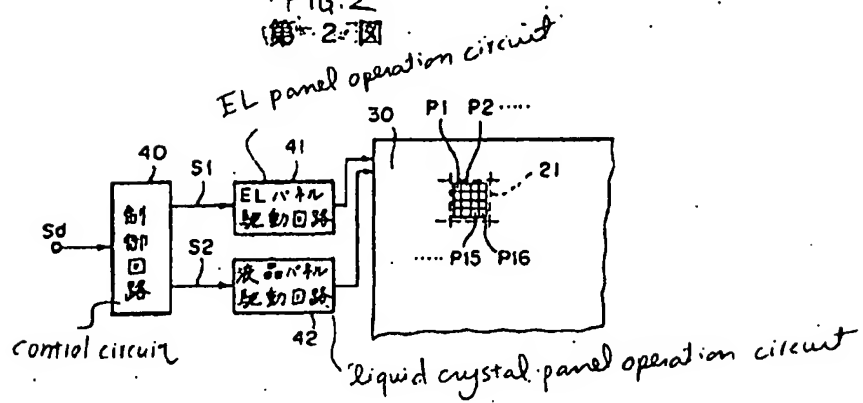 FIG.2
第 2 図
EL panel operation circuit
30
P1 P2 .....
40
S1
41
21
Sd
制御回路
ELパネル
駆動回路
S2
..... P15 P16
液晶パネル
駆動回路
42
control circuit
liquid crystal panel operation circuit